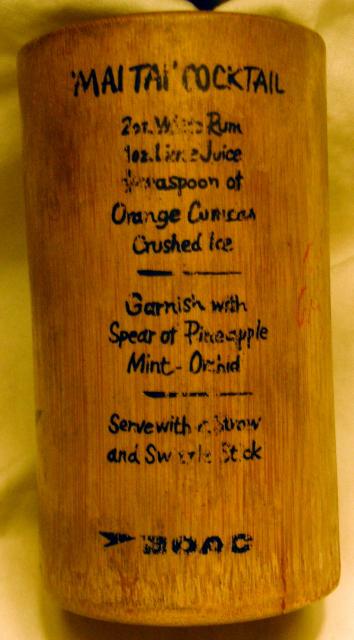 'MAI TAI' COCKTAIL
2oz. White Rum
1oz. Lime Juice
teaspoon of
Orange Curacoa
Crushed Ice
Garnish with
Spear of Pineapple
Mint - Orchid
Serve with a Straw
and Swizzle Stick
BOAC